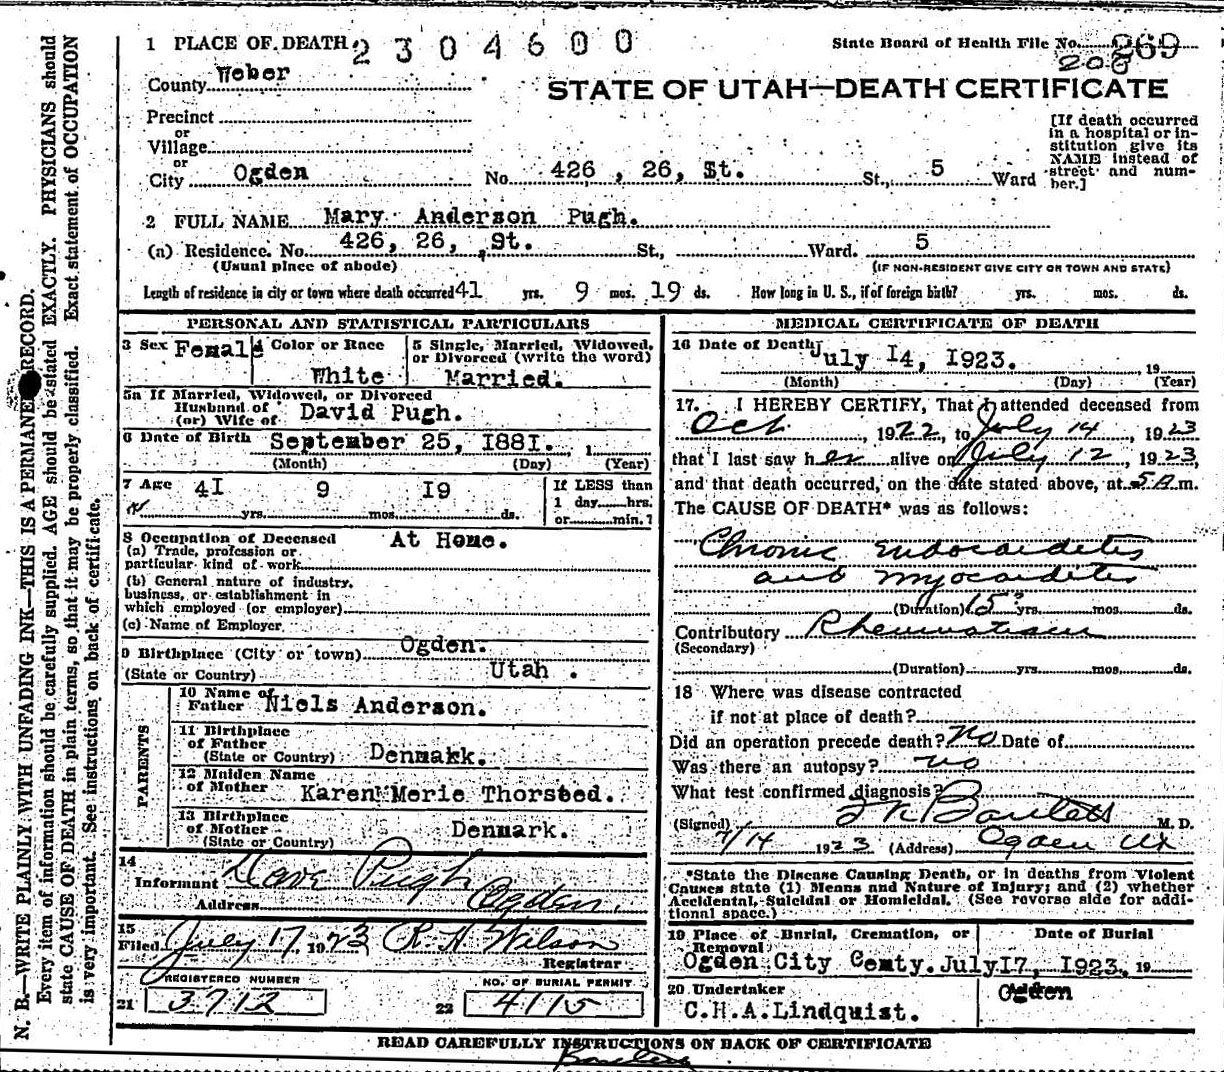 1 PLACE OF DEATH 2304600 State Board of Health File No. 269
208
County Weber
STATE OF UTAH—DEATH CERTIFICATE
Precinct
or
Village
or
City Ogden No. 426, 26, St. St., 5 Ward
[If death occurred
in a hospital or in-
stitution give its
NAME instead of
street and num-
ber.]
2 FULL NAME Mary Anderson Pugh.
(a) Residence. No. 426, 26, St. St., Ward. 5
(Usual place of abode) (IF NON-RESIDENT GIVE CITY OR TOWN AND STATE)
Length of residence in city or town where death occurred 41 yrs. 9 mos. 19 ds. How long in U. S., if of foreign birth? yrs. mos. ds.
PERSONAL AND STATISTICAL PARTICULARS
3 Sex Female
4 Color or Race White
5 Single, Married, Widowed,
or Divorced (write the word)
Married.
5a If Married, Widowed, or Divorced
Husband of
(or) Wife of David Pugh.
6 Date of Birth September 25, I88I. 1
(Month) (Day) (Year)
7 Age 4I yrs. 9 mos. I9 ds.
If LESS than
1 day hrs.
or min.?
8 Occupation of Deceased At Home.
(a) Trade, profession or
particular kind of work
(b) General nature of industry,
business, or establishment in
which employed (or employer)
(c) Name of Employer
9 Birthplace (City or town) Ogden.
(State or Country) Utah .
PARENTS
10 Name of
Father Niels Anderson.
11 Birthplace
of Father
(State or Country) Denmark.
12 Maiden Name
of Mother Karen Merie Thorsted.
13 Birthplace
of Mother
(State or Country) Denmark.
14
Informant Dave Pugh
Address Ogden.
15
Filed July 17 1923 R. H. Wilson
Registrar
REGISTERED NUMBER
21 3712
NO. OF BURIAL PERMIT
22 4115
MEDICAL CERTIFICATE OF DEATH
16 Date of Death July I4, I923. 19
(Month) (Day) (Year)
17. I HEREBY CERTIFY, That I attended deceased from
Oct , 1922, to July 14 , 1923
that I last saw her alive on July 12, 1923,
and that death occurred, on the date stated above, at 5 A.m.
The CAUSE OF DEATH* was as follows:
Chronic Endocarditis
and Myocarditis
(Duration) 15? yrs. mos. ds.
Contributory Rheumatism
(Secondary)
(Duration) yrs. mos. ds.
18 Where was disease contracted
if not at place of death?
Did an operation precede death? No Date of
Was there an autopsy? No
What test confirmed diagnosis?
(Signed) Bartlett M. D.
7/14 1923 (Address) Ogden Ut
*State the Disease Causing Death, or in deaths from Violent
Causes state (1) Means and Nature of Injury; and (2) whether
Accidental, Suicidal or Homicidal. (See reverse side for addi-
tional space.)
19 Place of Burial, Cremation, or
Removal
Ogden City Cemty.
Date of Burial
July I7, I923. 19
20 Undertaker
C.H.A.Lindquist.
Ogden
READ CAREFULLY INSTRUCTIONS ON BACK OF CERTIFICATE
N. B.—WRITE PLAINLY WITH UNFADING INK—THIS IS A PERMANENT RECORD.
Every item of information should be carefully supplied. AGE should be stated EXACTLY. PHYSICIANS should
state CAUSE OF DEATH in plain terms, so that it may be properly classified. Exact statement of OCCUPATION
is very important. See instructions on back of certificate.